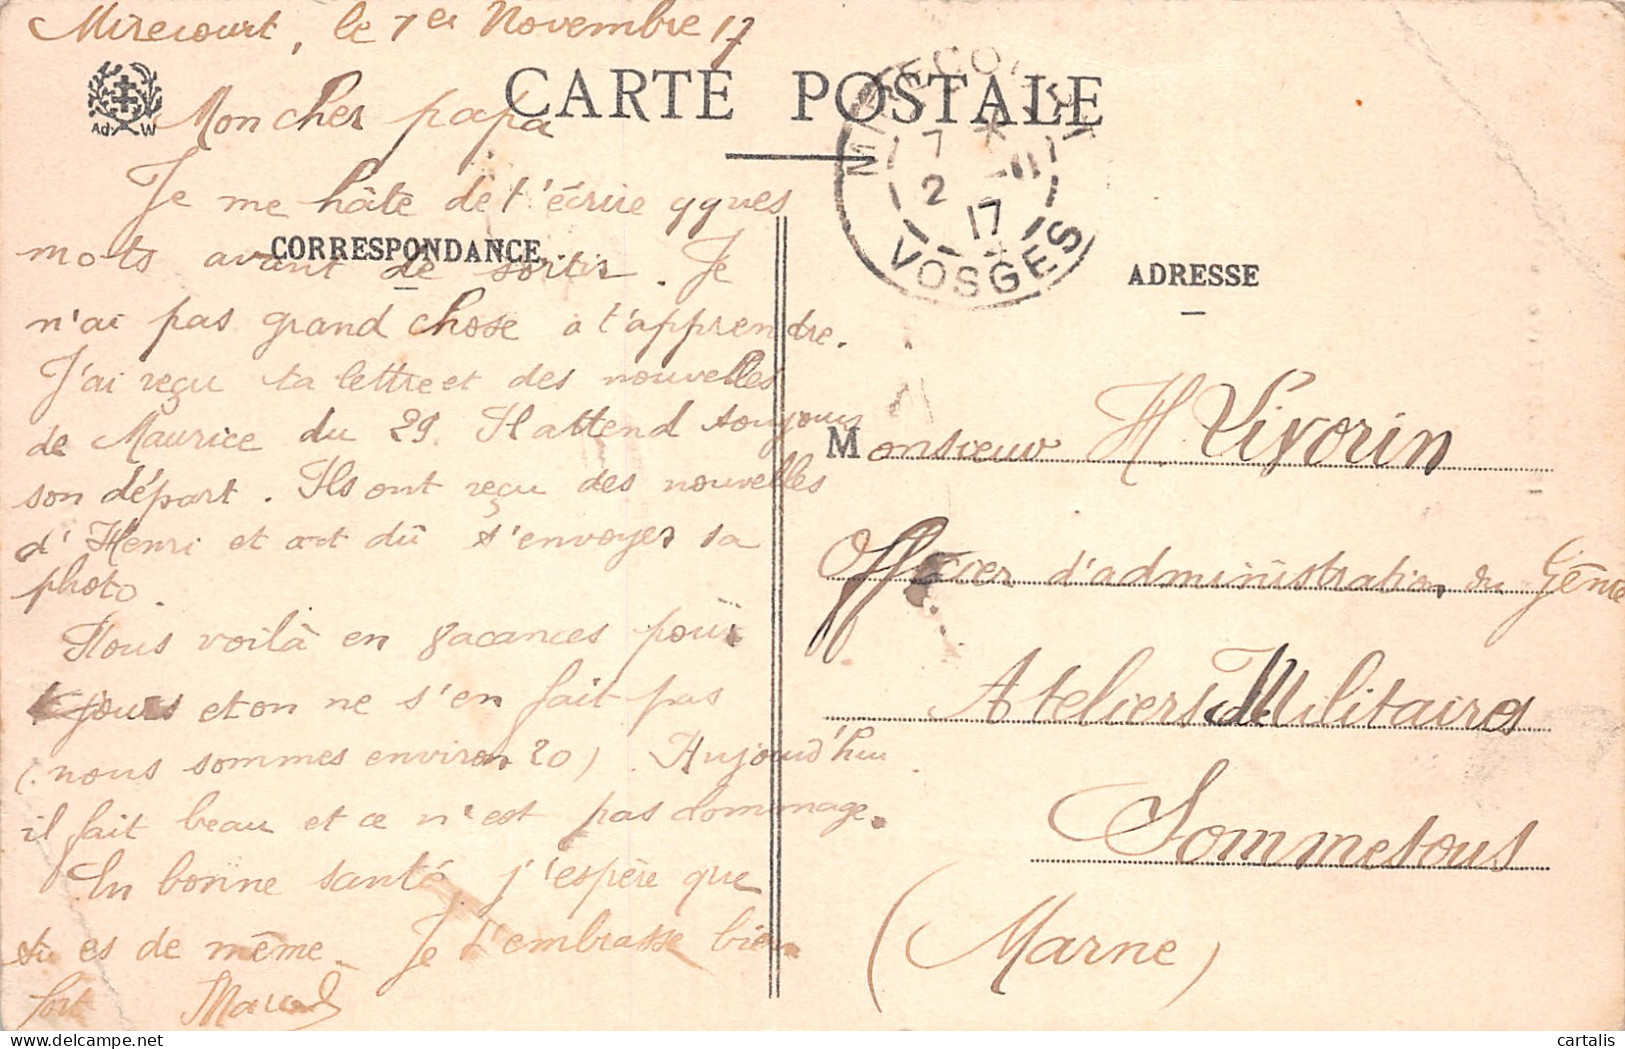 Mirecourt, le 1er Novembre 17
CARTE POSTALE
Ad W
Mon cher papa
Je me hâte de t'écrire qques
mots avant de sortir. Je
CORRESPONDANCE
n'ai pas grand chose a t'apprendre.
J'ai reçu ta lettre et des nouvelles
de Maurice du 29. Il attend toujours
son départ. Ils ont reçu des nouvelles
d'Henri et ont dû s'envoyer sa
photo.
Nous voilà en vacances pour
jours et on ne s'en fait pas
(nous sommes environ 20). Aujourd'hui
il fait beau et ce n'est pas dommage.
En bonne santé j'espère que
tu es de même. Je t'embrasse bien
fort Marcel
MIRECOURT
7 *
2 -11
17
VOSGES
ADRESSE
Monsieur H. Livorin
Officier d'administration du Génie
Ateliers Militaires
Sommesous
(Marne)
cartalis